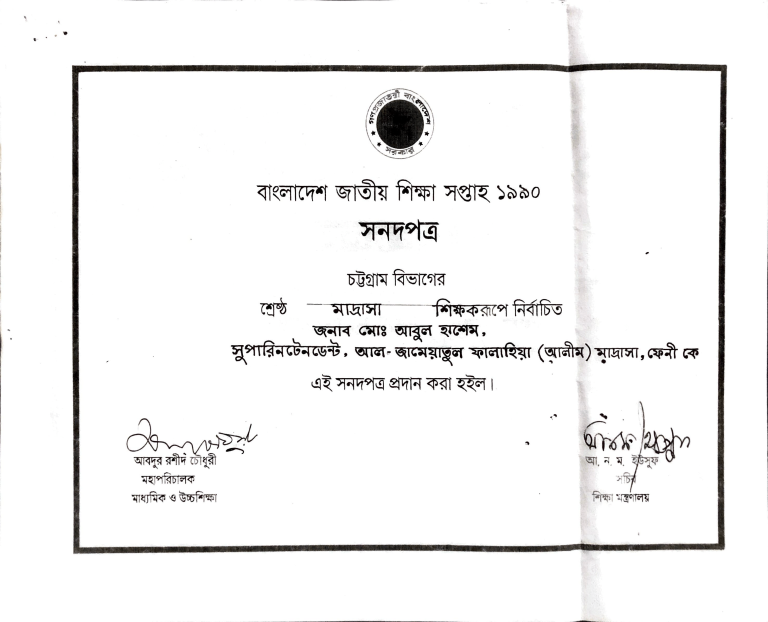 গণপ্রজাতন্ত্রী বাংলাদেশ
সরকার
বাংলাদেশ জাতীয় শিক্ষা সপ্তাহ ১৯৯০
সনদপত্র
চট্টগ্রাম বিভাগের
শ্রেষ্ঠ মাদ্রাসা শিক্ষকরূপে নির্বাচিত
জনাব মোঃ আবুল হাশেম,
সুপারিনটেনডেন্ট, আল-জামেয়াতুল ফালাহিয়া (আলীম) মাদ্রাসা, ফেনী কে
এই সনদপত্র প্রদান করা হইল।
আবদুর রশীদ চৌধুরী
মহাপরিচালক
মাধ্যমিক ও উচ্চশিক্ষা
আ. ন. ম. ইউসুফ
সচিব
শিক্ষা মন্ত্রণালয়